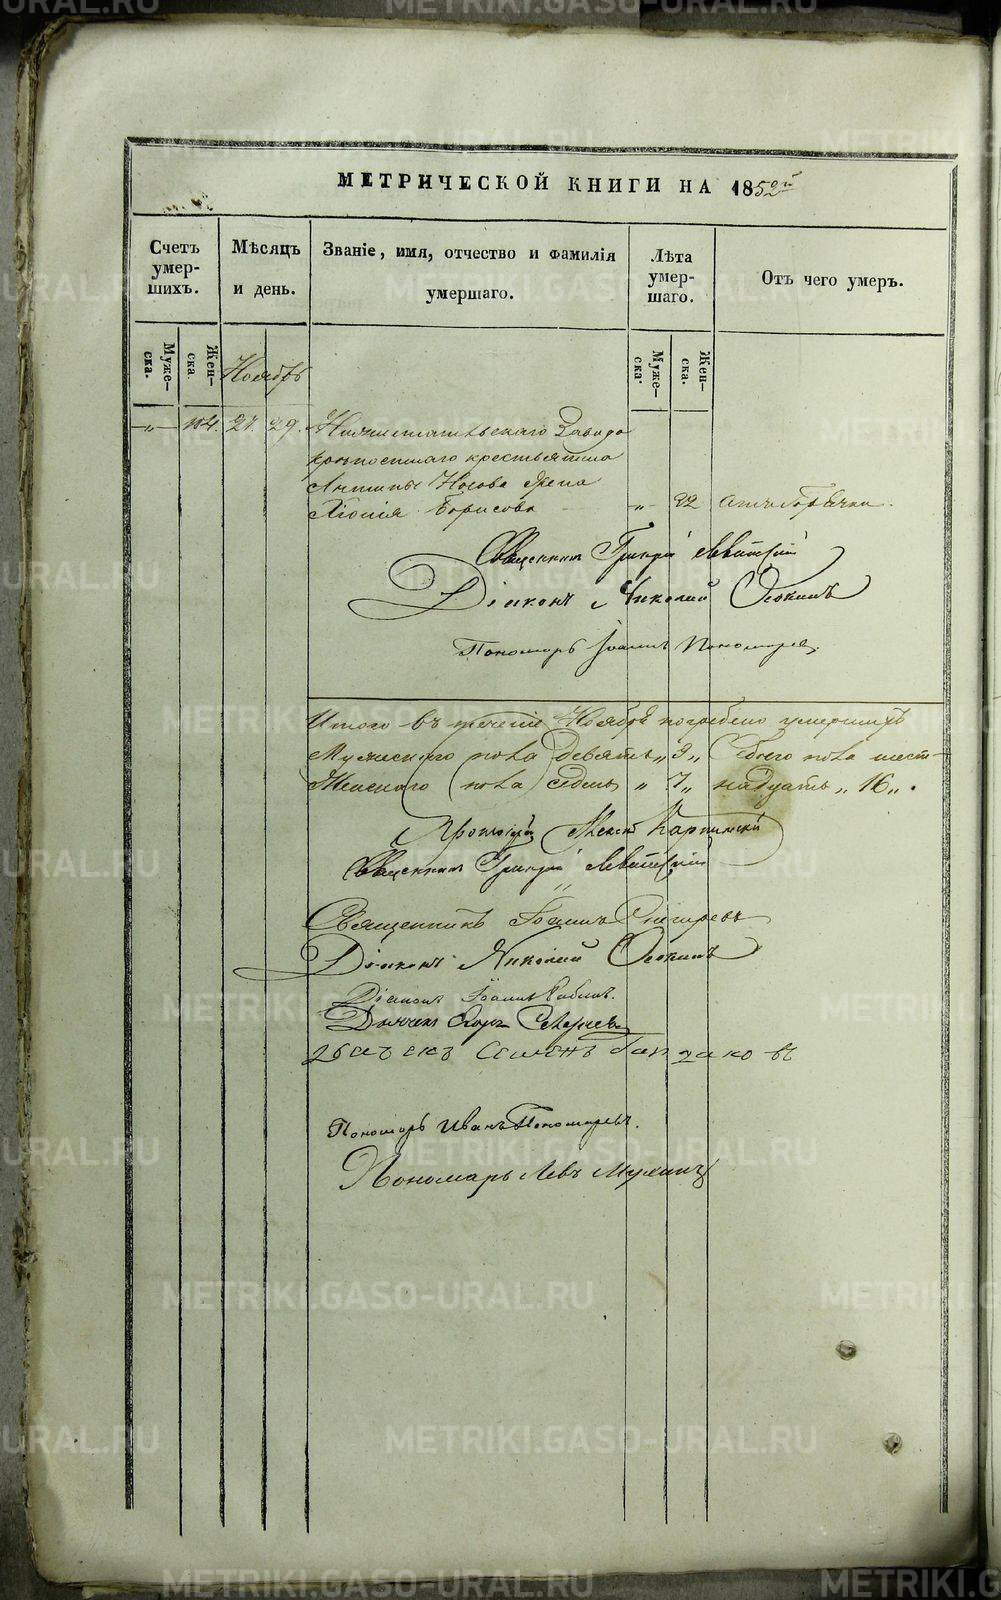 МЕТРИЧЕСКОЙ КНИГИ НА 1852й
Счетъ умер-шихъ.
Мѣсяцъ и день.
Званіе, имя, отчество и фамилія умершаго.
Лѣта умер-шаго.
Отъ чего умеръ.
Муже-ска.
Жен-ска.
Муже-ска.
Жен-ска.
Ноябрь
-„- 104. 27. 29. Нижнетагильскаго Завода
крѣпостнаго крестьянина
Антипы Носова жена
Хіонія Борисова -„- 22 отъ горячки.
Священникъ Григорій Левитскій
Діаконъ Николай Осокинъ
Пономарь Іоаннъ Пономаревъ.
Итого въ теченіе Ноября погребено умершихъ
Мужескаго пола девять „9„ Обоего пола шест-
Женскаго пола седмь „7„ надцать „16„.
Протоіерей Карпинскій
Священникъ Григорій Левитскій
Священникъ Іоаннъ Снигиревъ
Діаконъ Николай Осокинъ
Діаконъ Іоаннъ Бабинъ.
Дьячекъ
Семенъ
Пономарь Иванъ Пономаревъ.
Пономарь Левъ Мухинъ